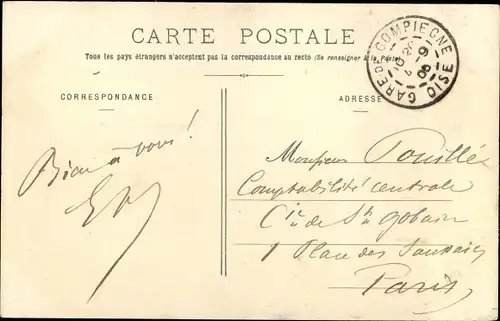 CARTE POSTALE
Tous les pays étrangers n'acceptent pas la correspondance au recto (Se renseigner à la Poste)
CORRESPONDANCE
ADRESSE
GARE DE COMPIEGNE
OISE
Bien à vous!
Monsieur Pouillé
Comptabilité centrale
Cie de St Gobain
1 Place des Saussaies
Paris